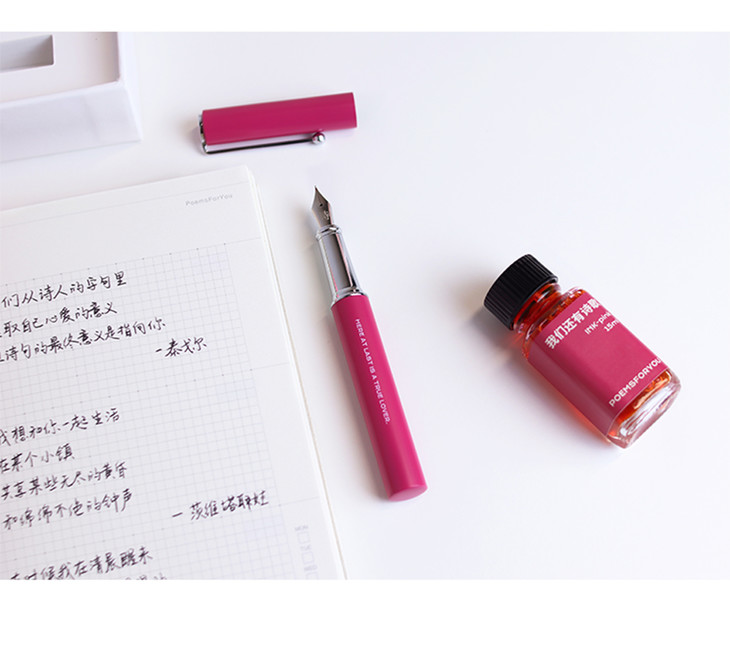 PoemsForYou
们从诗人的字句里
取自己心爱的意义
诗句的最终意义是指向你
-泰戈尔
我想和你一起生活
在某个小镇
共享某些无尽的黄昏
和绵绵不绝的钟声
-茨维塔耶娃
有时候我在清晨醒来
HERE AT LAST IS A TRUE LOVER.
我们还有诗歌
INK-pink
15m
POEMSFORYOU